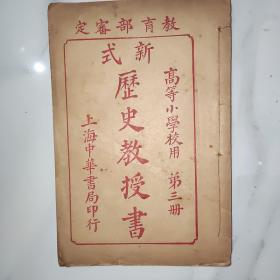 教育部審定
高等小學校用 第三册
新式
歷史教授書
上海中華書局印行